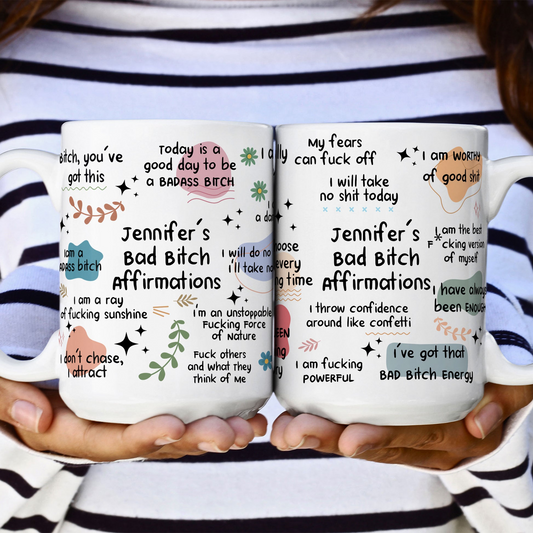 Bitch, you´ve
got this
Today is a
good day to be
a BADASS BITCH
I am a
BADASS bitch
Jennifer´s
Bad Bitch
Affirmations
I will do no
I'll take no
I am a ray
of fucking sunshine
I'm an unstoppable
Fucking Force
of Nature
I don´t chase,
I attract
Fuck others
and what they
Think of Me
My fears
can fuck off
I am WORTHY
of good shit
I will take
no shit today
Jennifer´s
Bad Bitch
Affirmations
I am the best
F*cking version
of myself
every
ng time
I have always
been ENOUGH
I throw confidence
around like confetti
I am fucking
POWERFUL
i´ve got that
BAD Bitch Energy